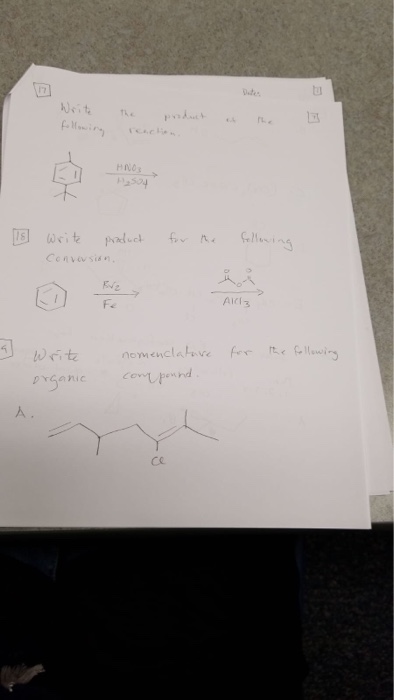 17
Write the product of the
following reaction.
HNO3
H2SO4
18 Write product for the following
Conversion.
Br2
Fe
O O
O
AlCl3
Write nomenclature for the following
organic compound.
A.
Cl